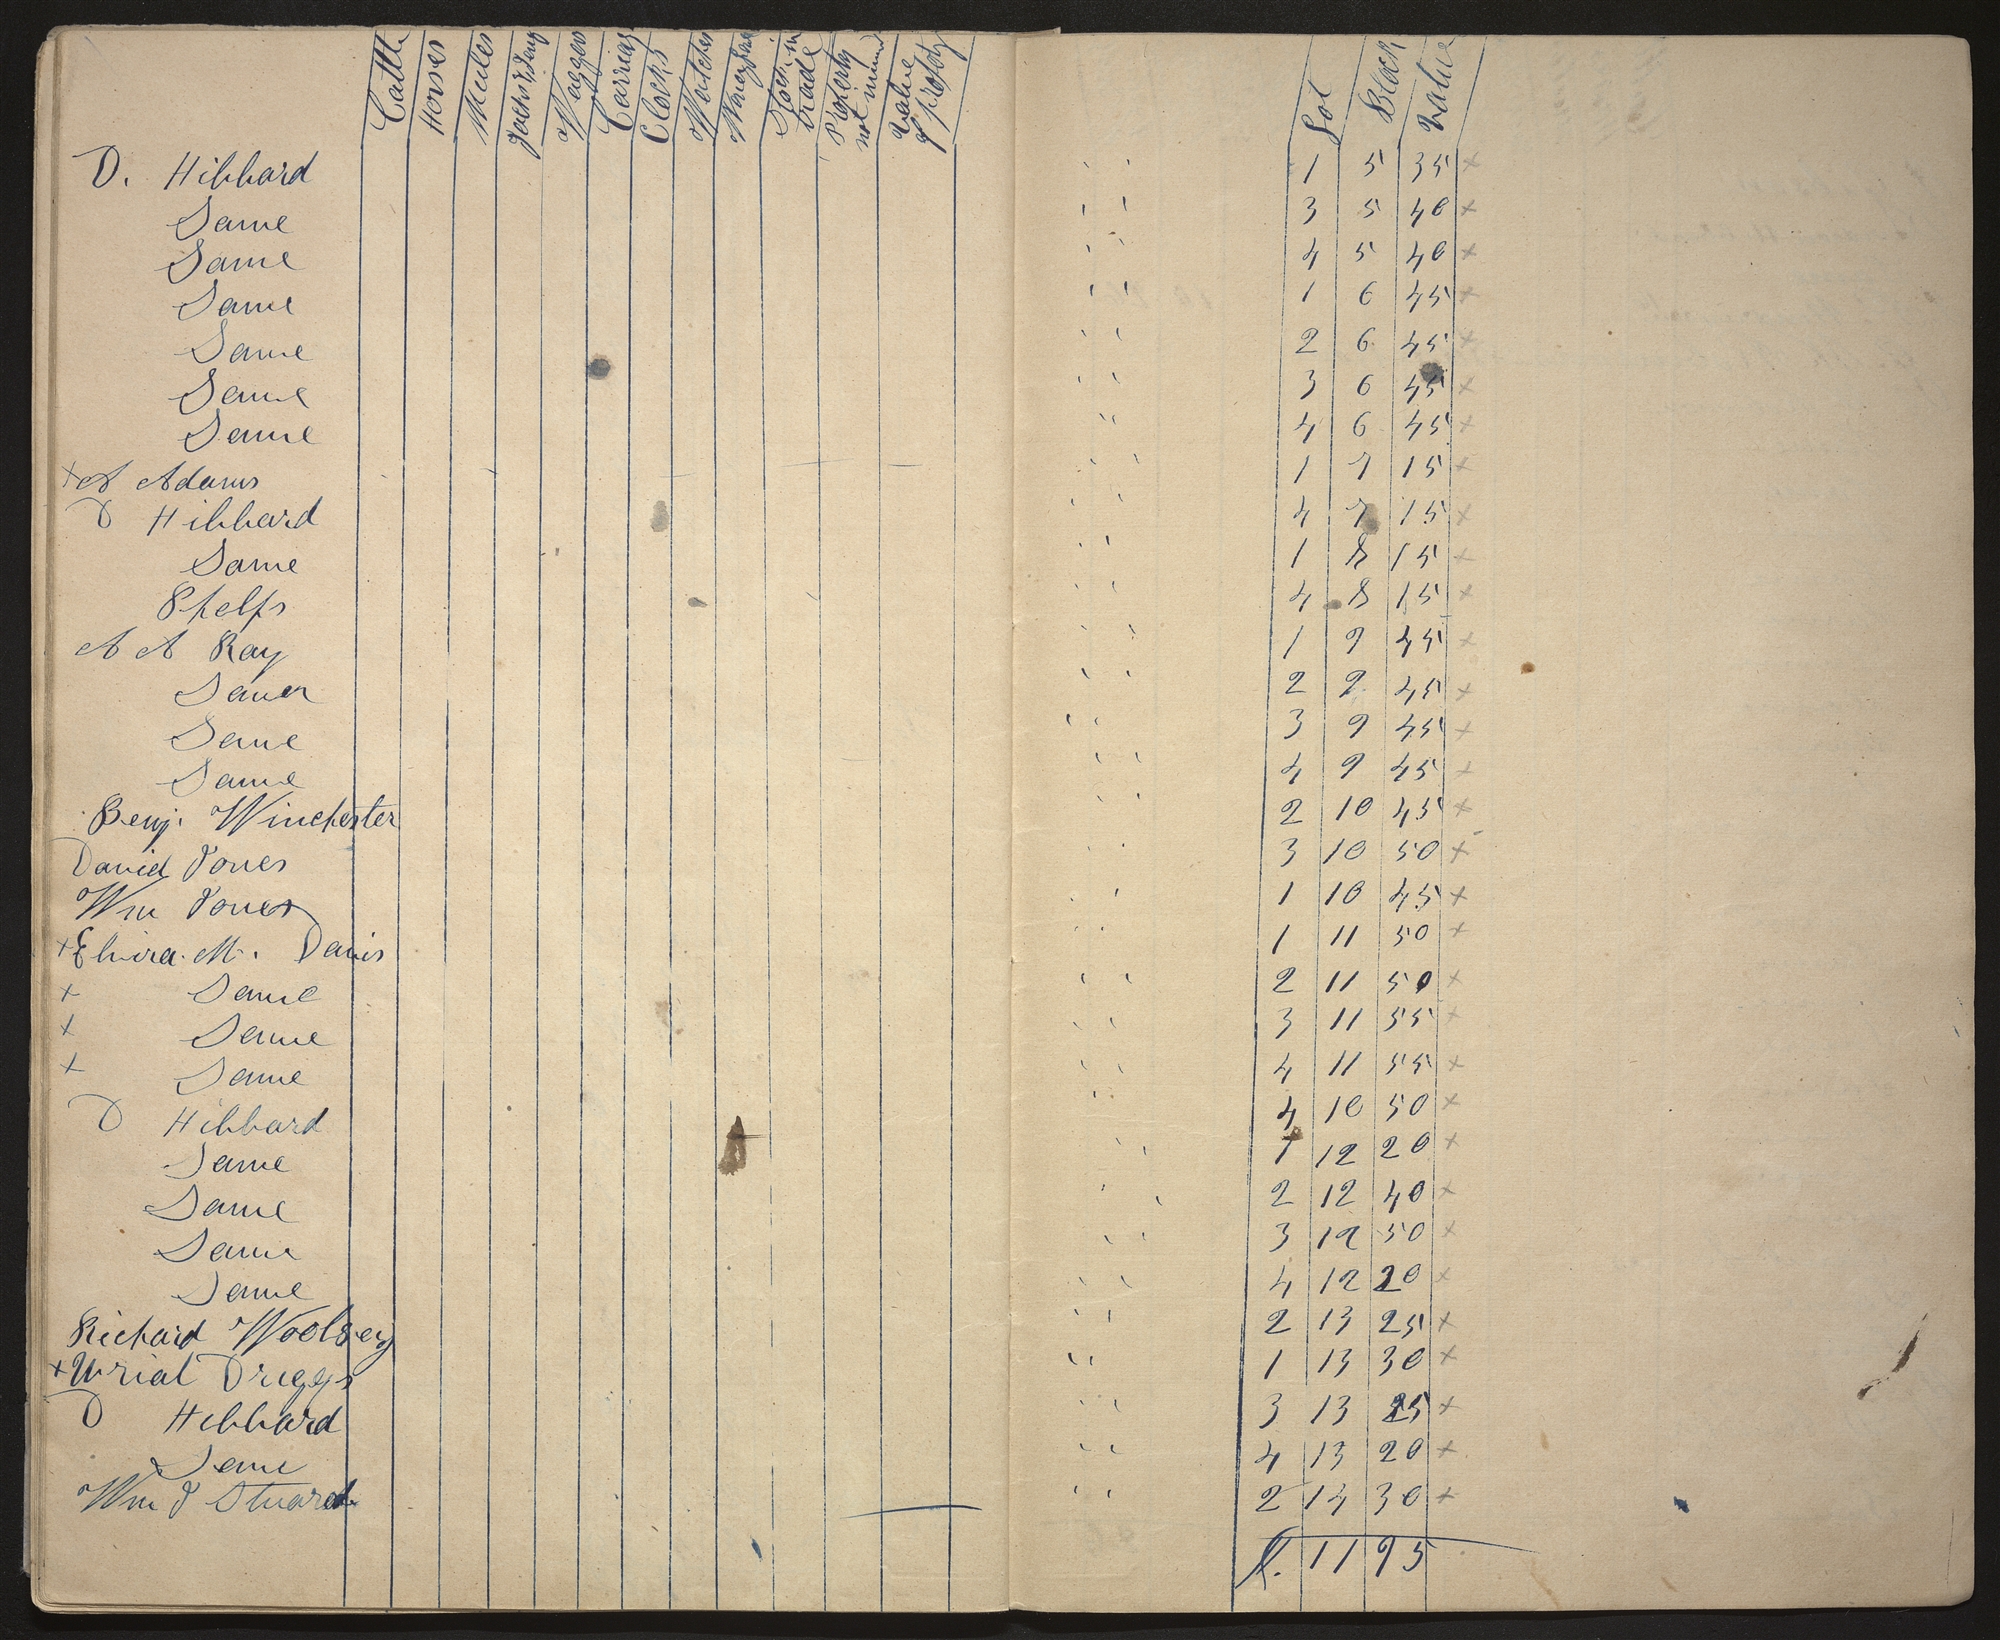 Cattle Horses Mules Waggons Carriag Clocks Watches Stock in trade Property not enum Value of proprty Lot Block Value
D. Hibbard 1 5 35 ×
Same 3 5 40 ×
Same 4 5 40 ×
Same 1 6 45 ×
Same 2 6 45 ×
Same 3 6 45 ×
Same 4 6 45 ×
+ A Adams 1 7 15 ×
D Hibbard 4 7 15 ×
Same 1 8 15 ×
Phelps 4 8 15 ×
A A Ray 1 9 45 ×
Same 2 9 45 ×
Same 3 9 45 ×
Same 4 9 45 ×
Benj. Winchester 2 10 45 ×
David Jones 3 10 50 ×
Wm Jones 1 10 45 ×
+ Elvira M. Davis 1 11 50 ×
+ Same 2 11 50 ×
+ Same 3 11 55 ×
+ Same 4 11 55 ×
D Hibbard 4 10 50 ×
Same 1 12 20 ×
Same 2 12 40 ×
Same 3 12 50 ×
Same 4 12 20 ×
Richard Woolsey 2 13 25 ×
+ Urial Driggs 1 13 30 ×
D Hibbard 3 13 25 ×
Same 4 13 20 ×
Wm J Stuard 2 14 30 ×
1195